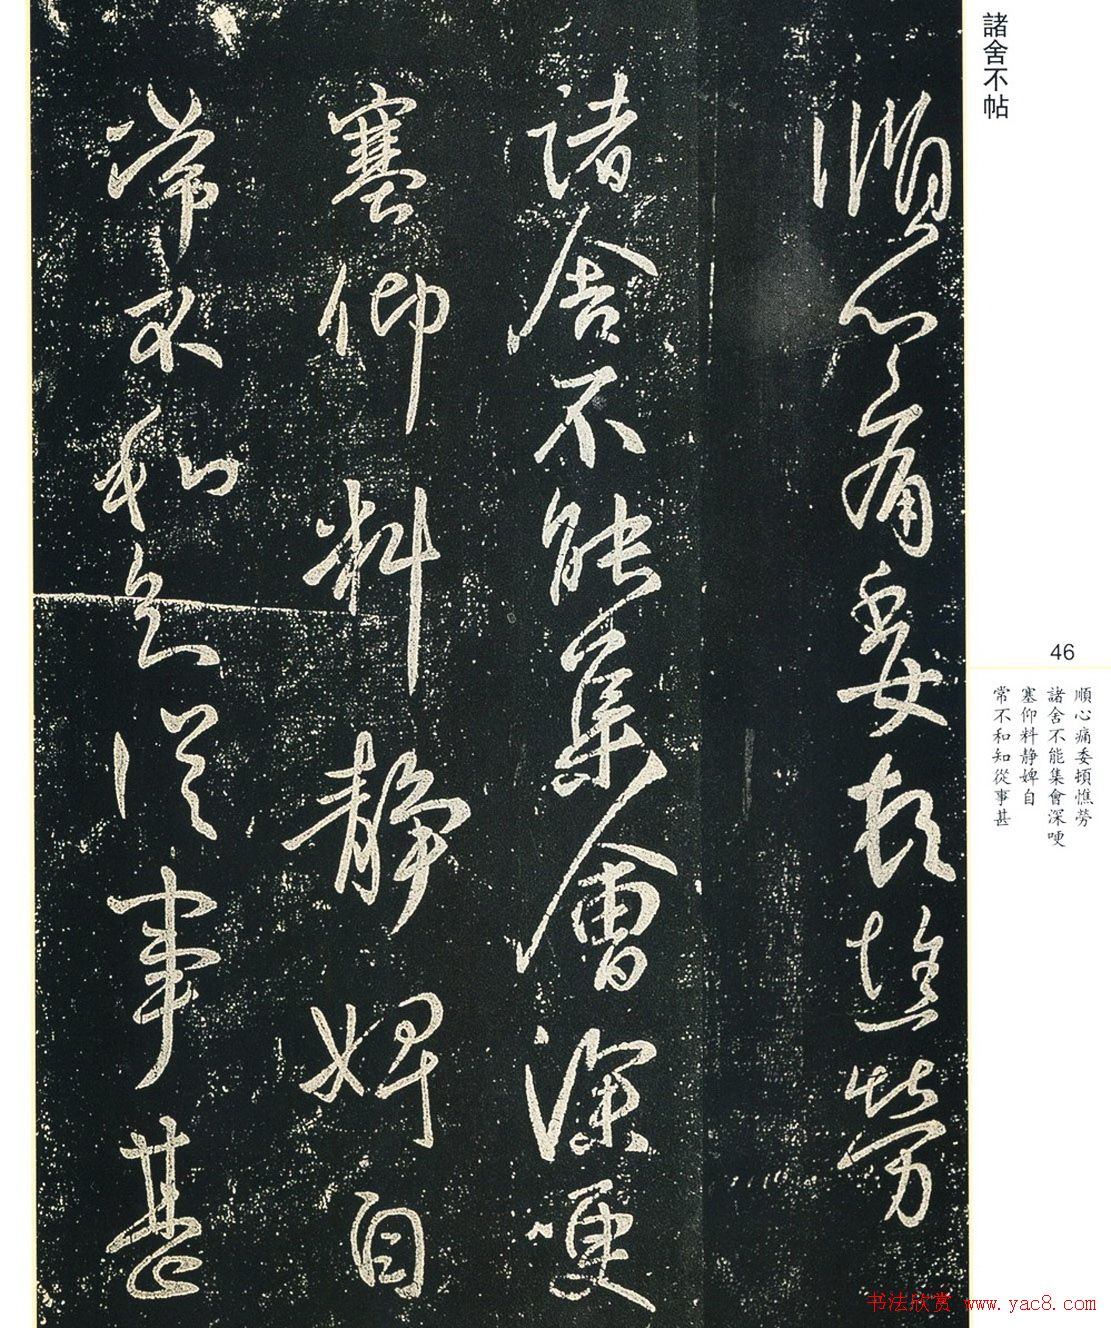 諸舍不帖
順心痛委頓憔勞
諸舍不能集會深哽
塞仰料静婢自
常不和知從事甚
46
順心痛委頓憔勞
諸舍不能集會深哽
塞仰料静婢自
常不和知從事甚
书法欣赏 www.yac8.com